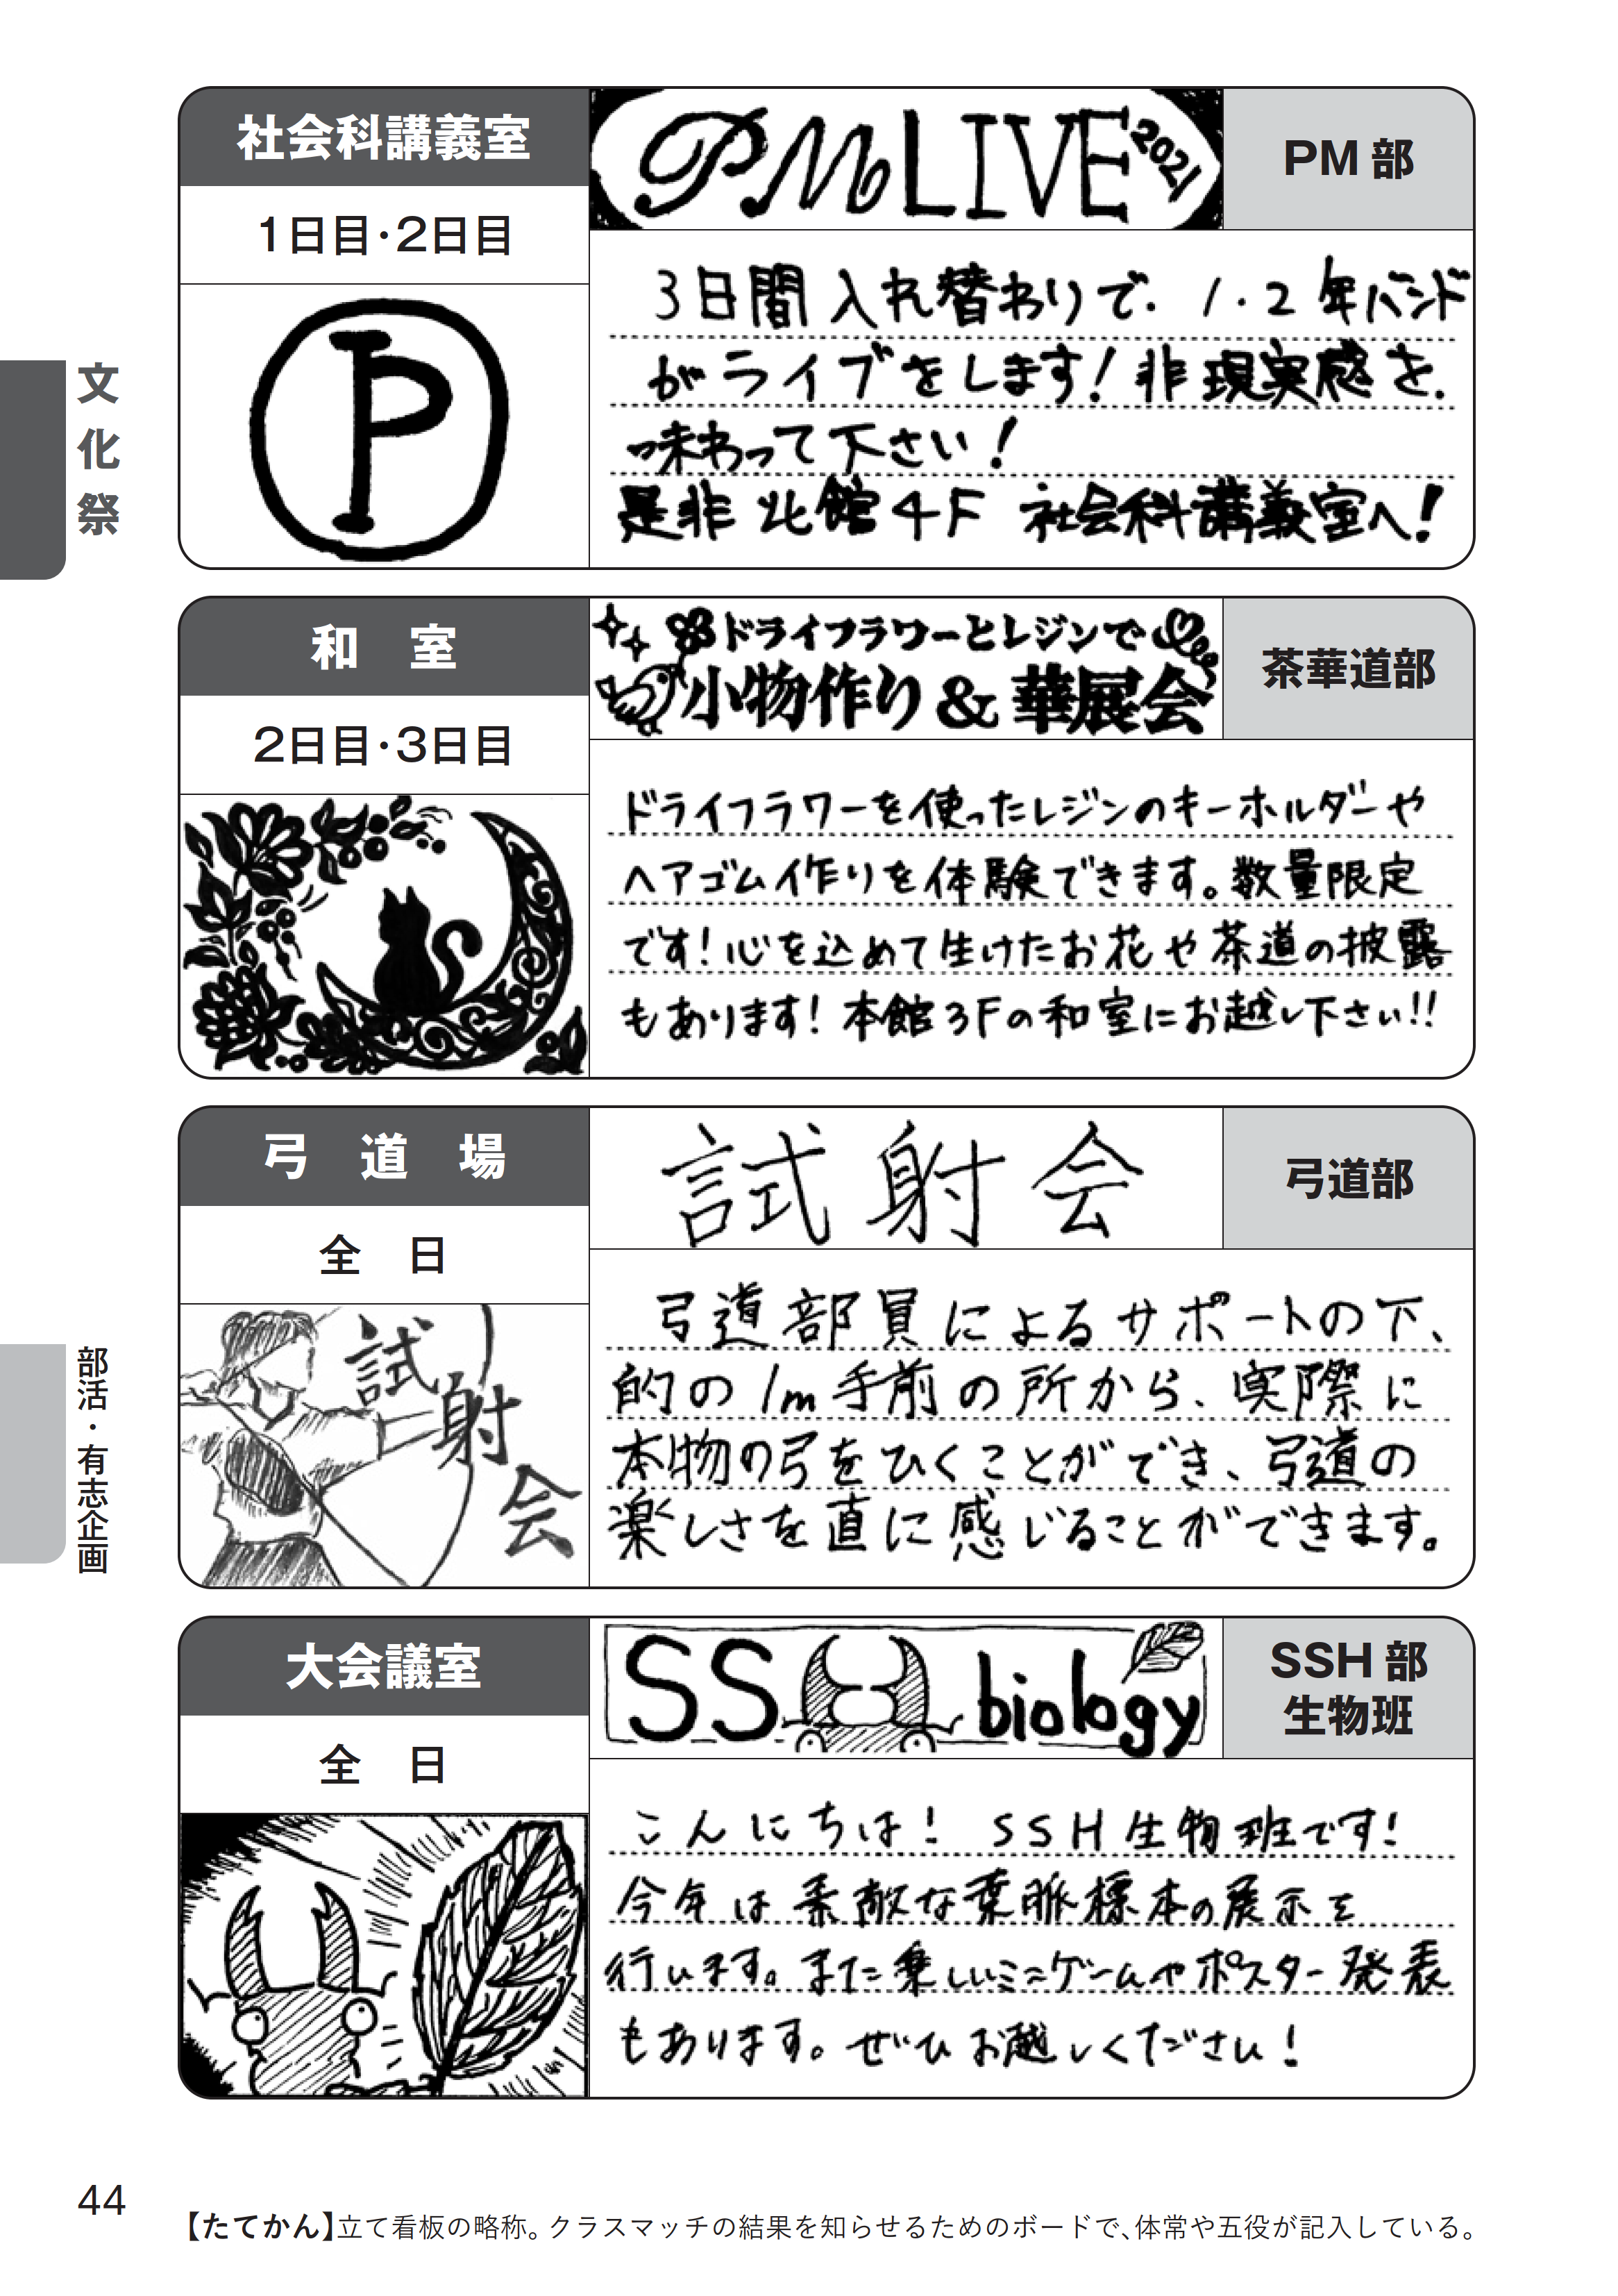 文化祭
部活・有志企画
社会科講義室
1日目・2日目
P
PM LIVE 2021
PM 部
3日間入れ替わりで、1・2年バンド
がライブをします!非現実感を、
味わって下さい!
是非北館4F 社会科講義室へ!
和 室
2日目・3日目
ドライフラワーとレジンで
小物作り&華展会
茶華道部
ドライフラワーを使ったレジンのキーホルダーや
ヘアゴム作りを体験できます。数量限定
です!心を込めて生けたお花や茶道の披露
もあります!本館3Fの和室にお越し下さい!!
弓 道 場
全 日
試射会
試射会
弓道部
弓道部員によるサポートの下、
的の1m手前の所から、実際に
本物の弓をひくことができ、弓道の
楽しさを直に感じることができます。
大会議室
全 日
SSH biology
SSH 部
生物班
こんにちは! SSH生物班です!
今年は素敵な葉脈標本の展示を
行います。また楽しいミニゲームやポスター発表
もあります。ぜひお越しください!
44
【たてかん】立て看板の略称。クラスマッチの結果を知らせるためのボードで、体常や五役が記入している。